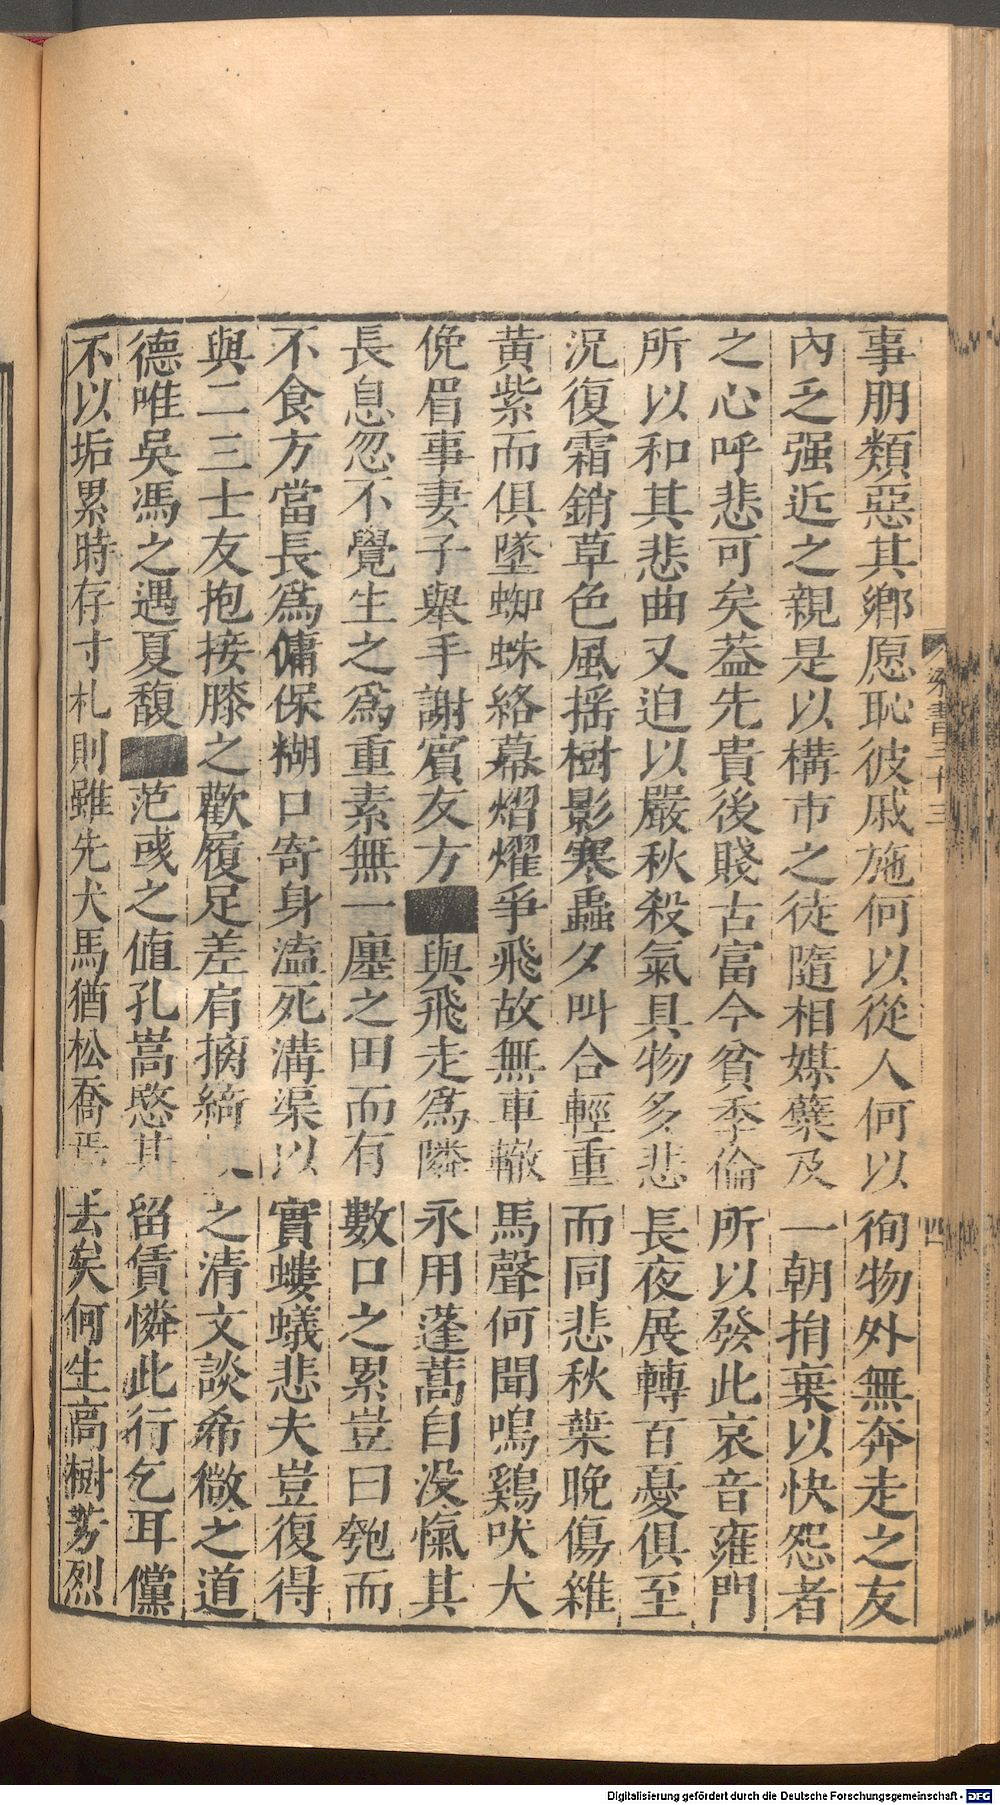 事朋類惡其鄉愿恥彼戚施何以從人何以徇物外無奔走之友
內乏强近之親是以構市之徒隨相媒櫱及一朝捐棄以快怨者
之心呼悲可矣葢先貴後賤古富今貧季倫所以發此哀音雍門
所以和其悲曲又迫以嚴秋殺氣具物多悲長夜展轉百憂俱至
況復霜銷草色風搖樹影寒蟲夕叫合輕重而同悲秋葉晚傷雜
黃紫而俱墜蜘蛛絡幕熠燿爭飛故無車轍馬聲何聞鳴鷄吠犬
俛眉事妻子舉手謝賓友方與飛走爲隣永用蓬蒿自没愾其
長息忽不覺生之爲重素無一廛之田而有數口之累豈曰匏而
不食方當長爲傭保糊口寄身溘死溝渠以實螻蟻悲夫豈復得
與二三士友抱接膝之歡履足差肩摛綺之清文談希微之道
德唯吳馮之遇夏馥范彧之値孔嵩愍其留賃憐此行乞耳儻
不以垢累時存寸札則雖先犬馬猶松喬焉去矣何生高樹芳烈
梁書三十三
四
Digitalisierung gefördert durch die Deutsche Forschungsgemeinschaft - DFG